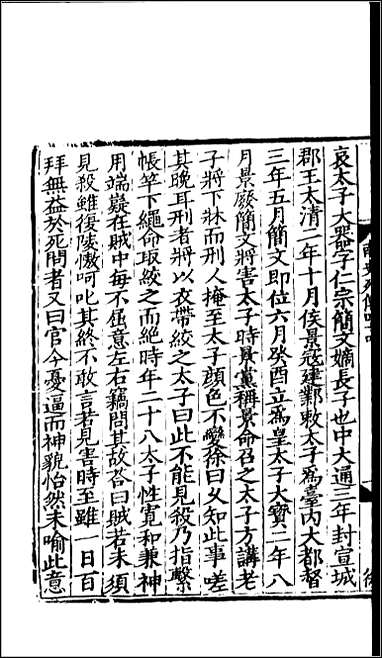 哀太子大器字仁宗簡文嫡長子也中大通三年封宣城
郡王太清二年十月侯景寇建鄴敕太子爲臺內大都督
三年五月簡文即位六月癸酉立爲皇太子大寶二年八
月景廢簡文將害太子時景黨稱景命召之太子方講老
子將下牀而刑人掩至太子顏色不變徐曰久知此事嗟
其晚耳刑者將以衣帶絞之太子曰此不能見殺乃指繫
帳竿下繩命取絞之而絕時年二十八太子性寬和兼神
用端嶷在賊中每不屈意左右竊問其故答曰賊若未須
見殺雖復陵慠呵叱其終不敢言若見害時至雖一日百
拜無益於死問者又曰官今憂逼而神貌怡然未喻此意